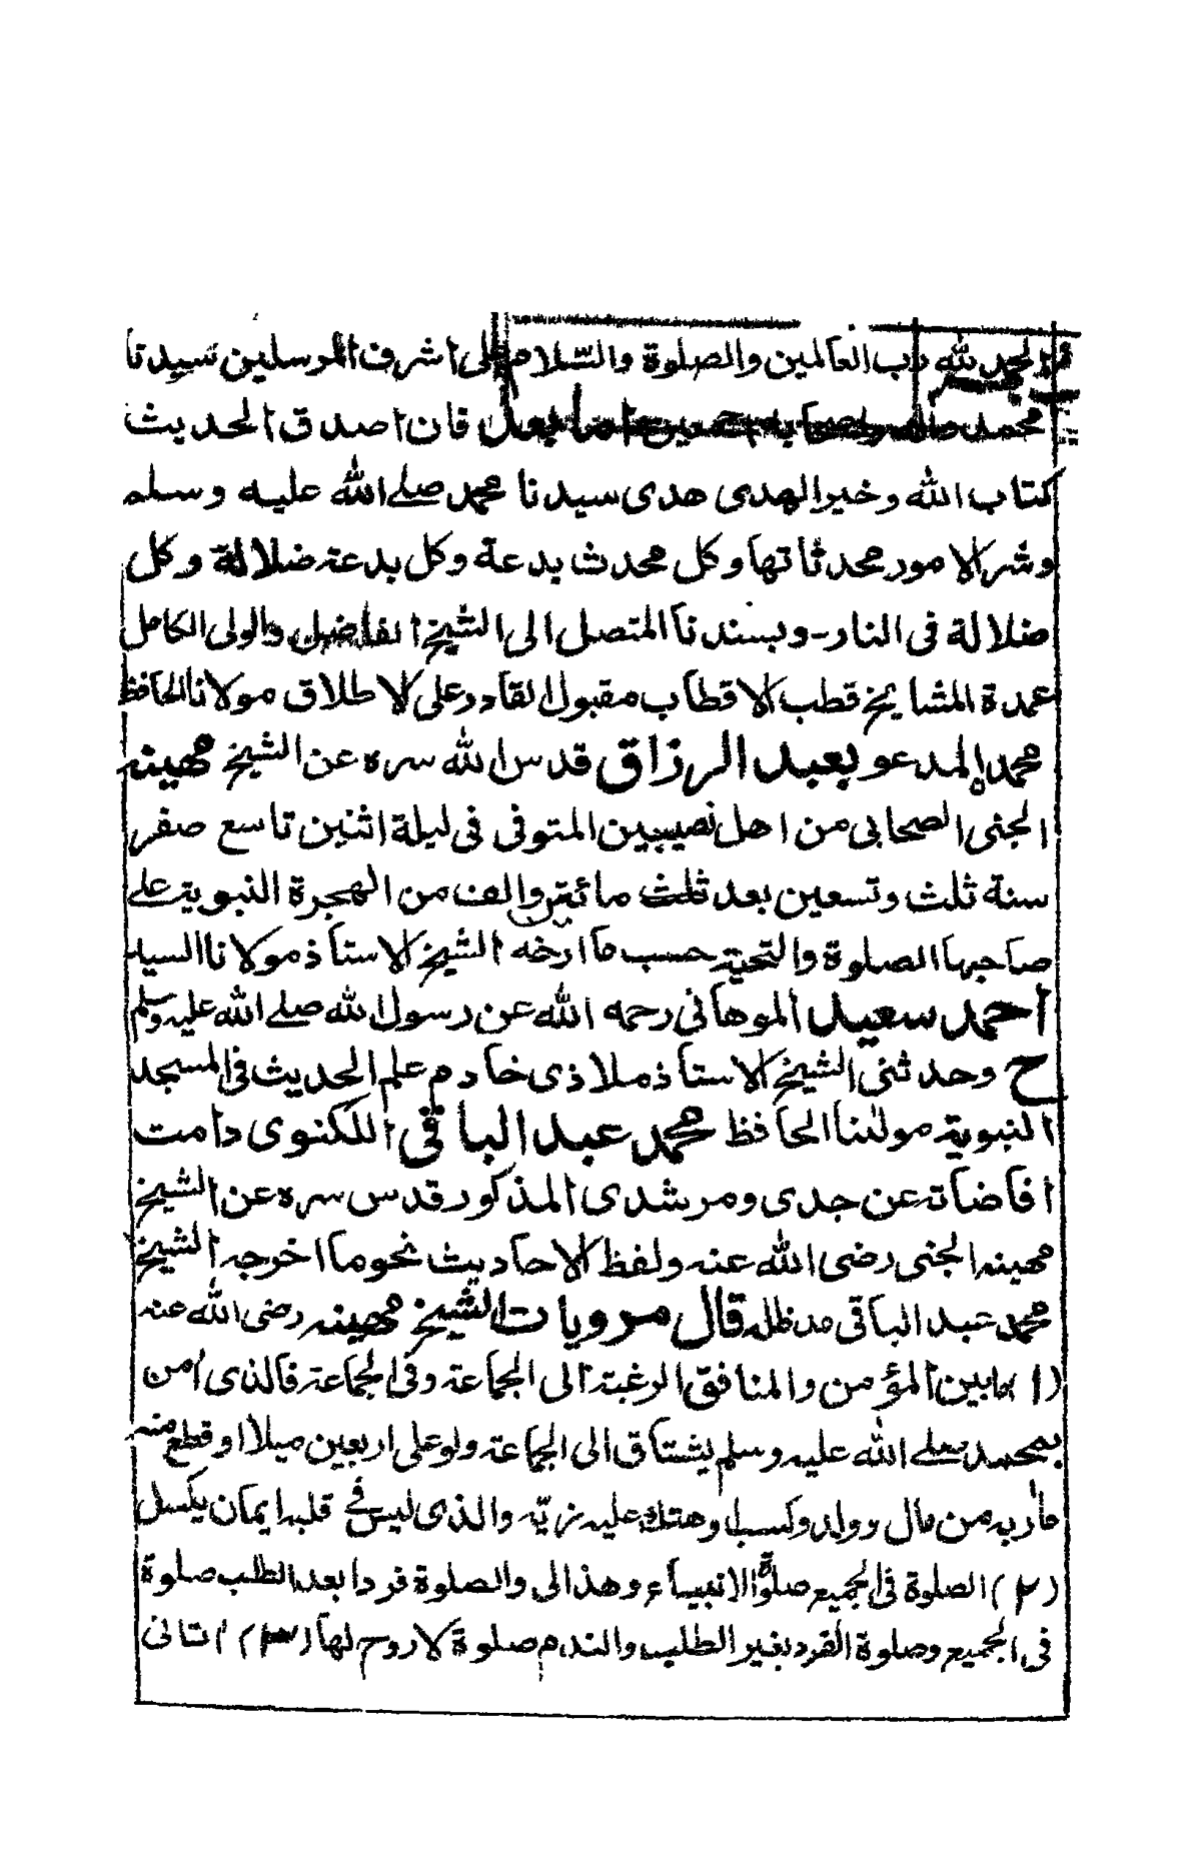 الحمد لله رب العالمين والصلوة والسّلام على اشرف المرسلين سيدنا
محمد واله واصحابه اجمعين اما بعد فان اصدق الحديث
كتاب الله وخير الهدى هدى سيدنا محمد صلے الله عليه وسلم
وشر الامور محدثاتها وكل محدث بدعة وكل بدعة ضلالة وكل
ضلالة فى النار - وبسندنا المتصل الى الشيخ الفاضل والولى الكامل
عمدة المشايخ قطب الاقطاب مقبول القادر على الاطلاق مولانا الحافظ
محمد المدعو بعبد الرزاق قدس الله سره عن الشيخ مهينه
الجنى الصحابى من اهل نصيبين المتوفى فى ليلة اثنين تاسع صفر
سنة ثلث وتسعين بعد ثلث مائة والف من الهجرة النبوية علے
صاحبها الصلوة والتحية حسب ما ارخه الشيخ الاستاذ مولانا السيد
احمد سعيد الموهانى رحمه الله عن رسول الله صلے الله عليه وسلم
ح وحدثنى الشيخ الاستاذ ملاذى خادم علم الحديث فى المسجد
النبوية مولٰنا الحافظ محمد عبد الباقى اللكنوى دامت
افاضاته عن جدى ومرشدى المذكور قدس سره عن الشيخ
مهينه الجنى رضى الله عنه ولفظ الاحاديث نحوما اخرجه الشيخ
محمد عبد الباقى مد ظله قال مرويات الشيخ مهينه رضى الله عنه
(١) مابين المؤمن والمنافق الرغبة الى الجماعة وفى الجماعة فالذى اٰمن
بمحمد صلے الله عليه وسلم يشتاق الى الجماعة ولو على اربعين ميلا او قطع منه
مأربه من مال وولد وكسب وهتك عليه زيّه والذى ليس فے قلبه ايمان يكسل
(٢) الصلوة فى الجميع صلوٰة الانبياء وهذا لى والصلوة فردا بعد الطلب صلوة
فى الجميع وصلوة الفرد بغير الطلب والندم صلوة لا روح لها (٣) اتانى